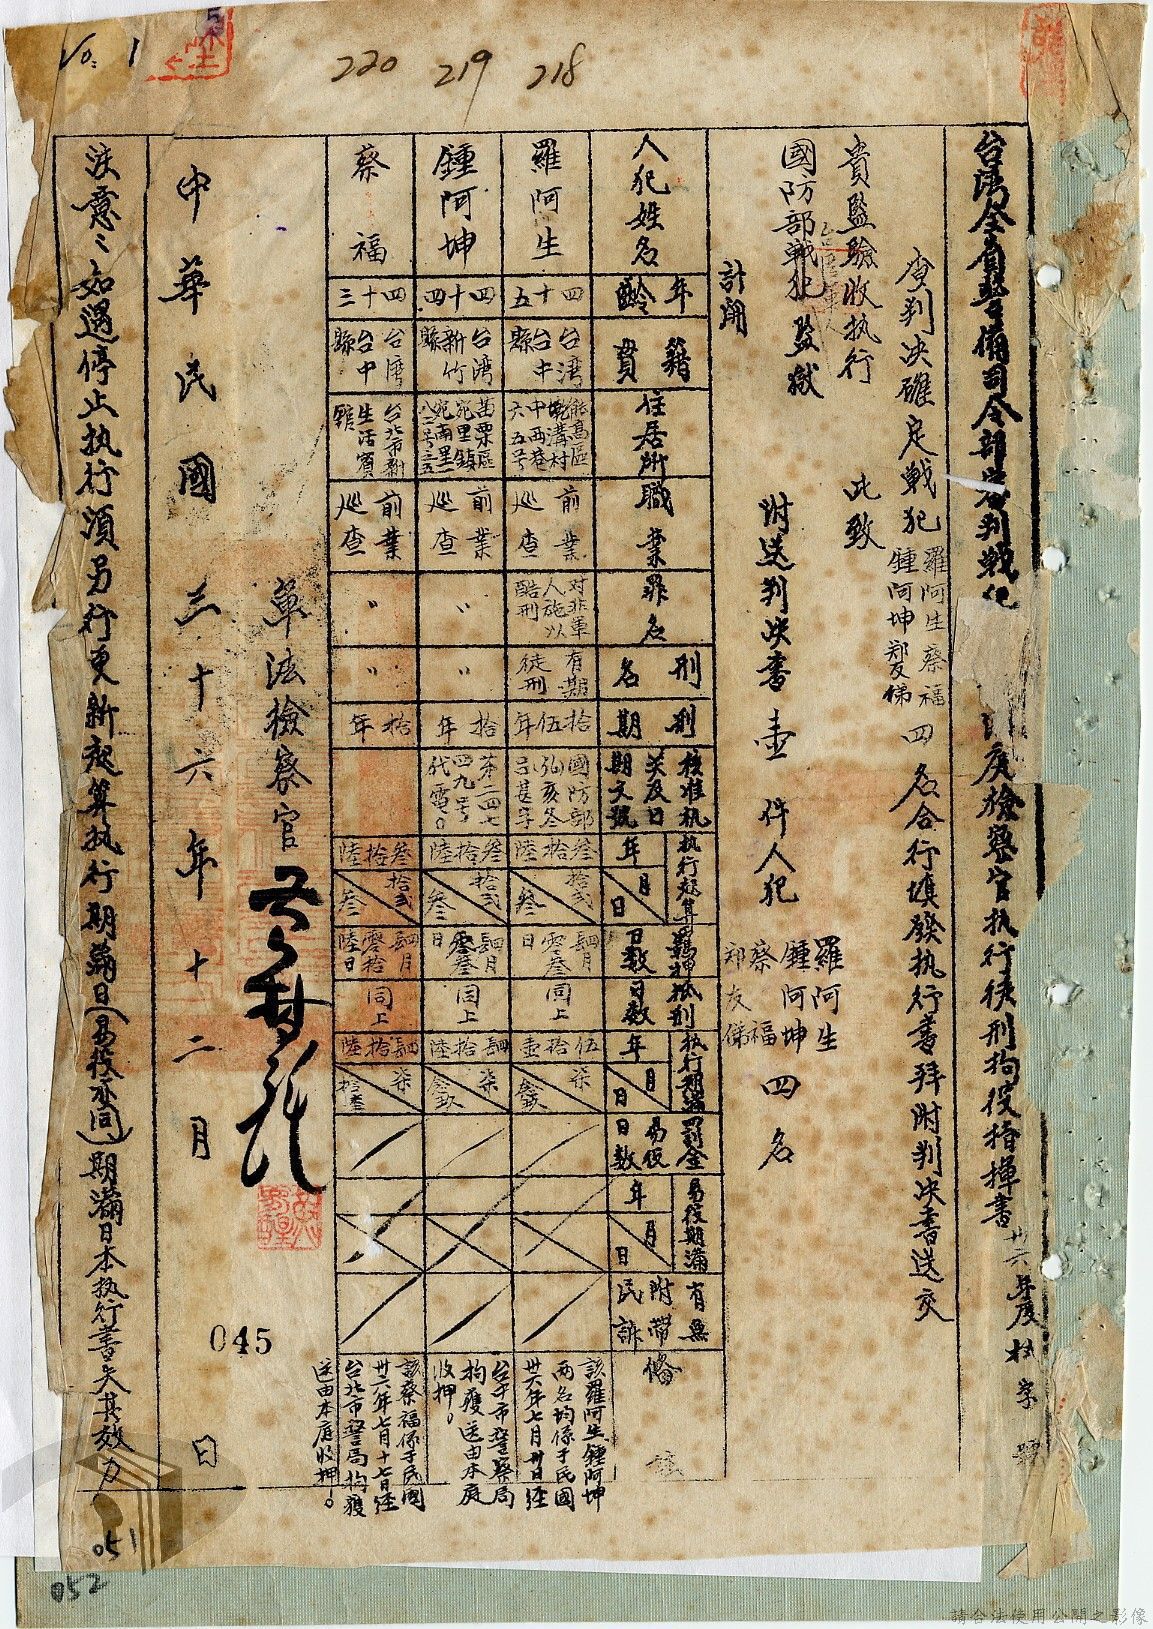 No. 1
220 219 218
台灣全省警備司令部審判戰犯
庭檢察官執行徒刑拘役指揮書 卅六年度 字 號
查判決確定戰犯 羅阿生 蔡福 鍾阿坤 鄭友悌 四名合行填發执行書拜附判决書送交
貴監驗收执行 此致
國防部戰犯監獄
附送判决書壹件人犯 羅阿生 鍾阿坤 蔡福 鄭友悌 四名
計開
人犯姓名 年齡 籍貫 住居所 職業 罪名 刑名 刑期 核准执 期文號 执行起算 年 月 日 羈押日数 抵刑日数 执行期滿 年 月 日 罰金易役日数 易役期滿 年 月 日 有無附帶民訴 備
羅阿生 四十五 台湾台中縣 能高區 溝村 六五号 前業巡查 对非軍人施以酷刑 有期徒刑 拾伍年 國防部
叁拾陸 拾弍 叁 肆月零叁日 同上 伍拾壹 柒
鍾阿坤 四十四 台湾新竹縣 苗栗區 苑里鎮 前業巡查 〃 〃 拾年 第二四七四九号代電。
叁拾陸 拾弍 叁 肆月零叁日 同上 肆拾陸 柒
該羅阿生鍾阿坤两名均係于民國卅六年七月卅日經台中市警察局拘獲送由本庭收押。
蔡福 四十三 台湾台中縣 台北市新生活賓舘 前業巡查 〃 〃 拾年
叁拾陸 拾弍 叁 肆月零拾陸日 同上 肆拾陸 柒
該蔡福係于民國卅六年七月十七日經台北市警局拘獲送由本庭收押。
軍法檢察官
中華民國三十六年十二月 日
注意：如遇停止执行須另行更新起算执行期滿日(易役亦同)，期滿日本执行書失其效力
045
051
052
請合法使用公開之影像